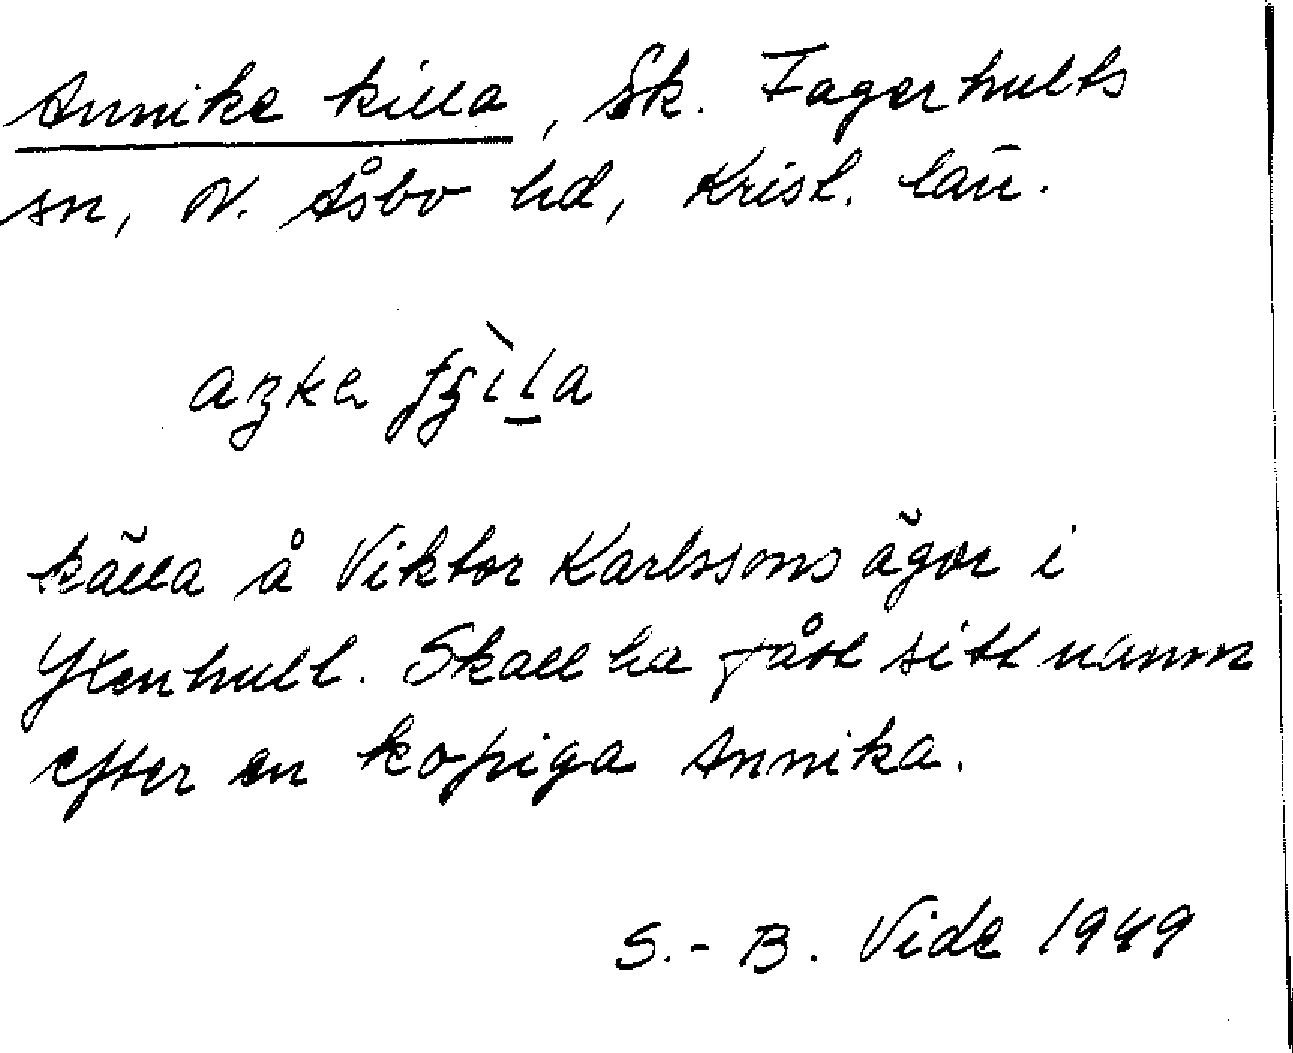 Annike killa, Sk. Fagerhults
sn, N. Åsbo hd, Krist. län.
källa å Viktor Karlssons ägor i
Yxenhult. Skall ha fått sitt namn
efter en kopiga Annika.
S.-B. Vide 1949